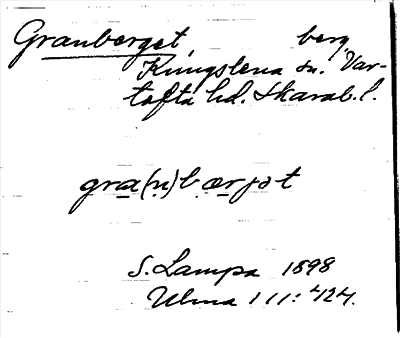 Granberget, berg,
Kungslena sn. Var-
tofta hd. Skarab. l.
gra(n)bærjət
S. Lampa 1898
Ulma 111: 424.